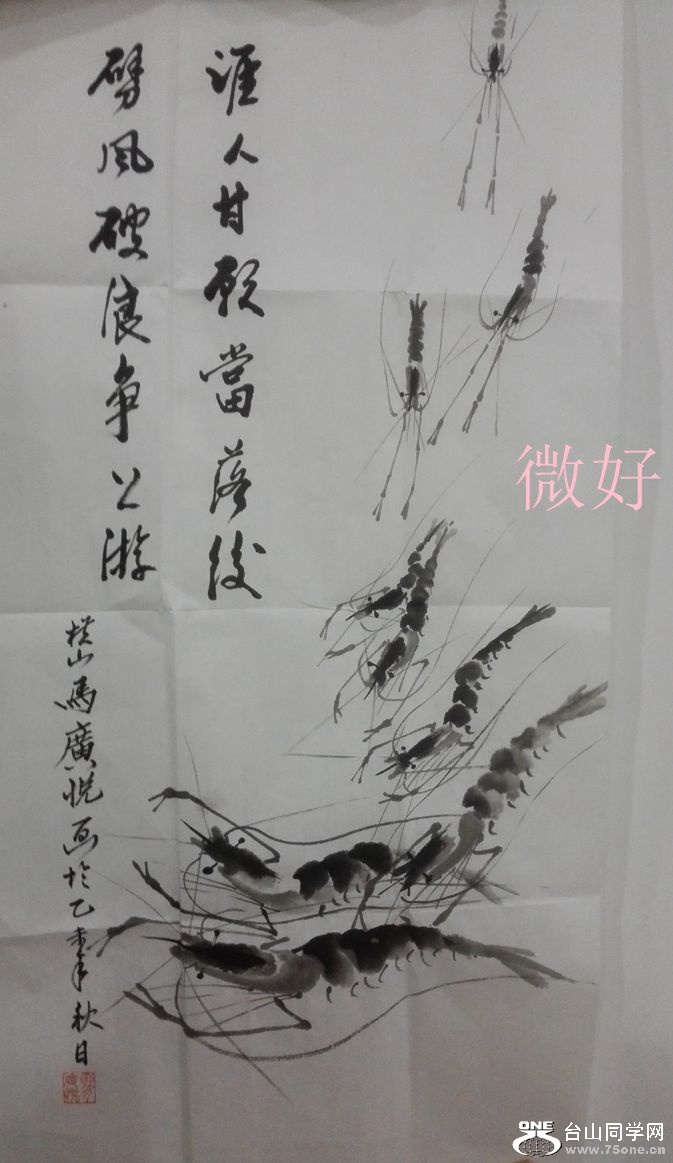 谁人甘願當落後
劈風破浪争上游
横山馬廣悦画於乙未年秋日
微好
ONE 台山同学网
www.75one.cn